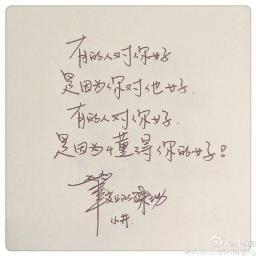 有的人对你好
是因为你对他好.
有的人对你好.
是因为懂得你的好!
笔尖的跳动
小井